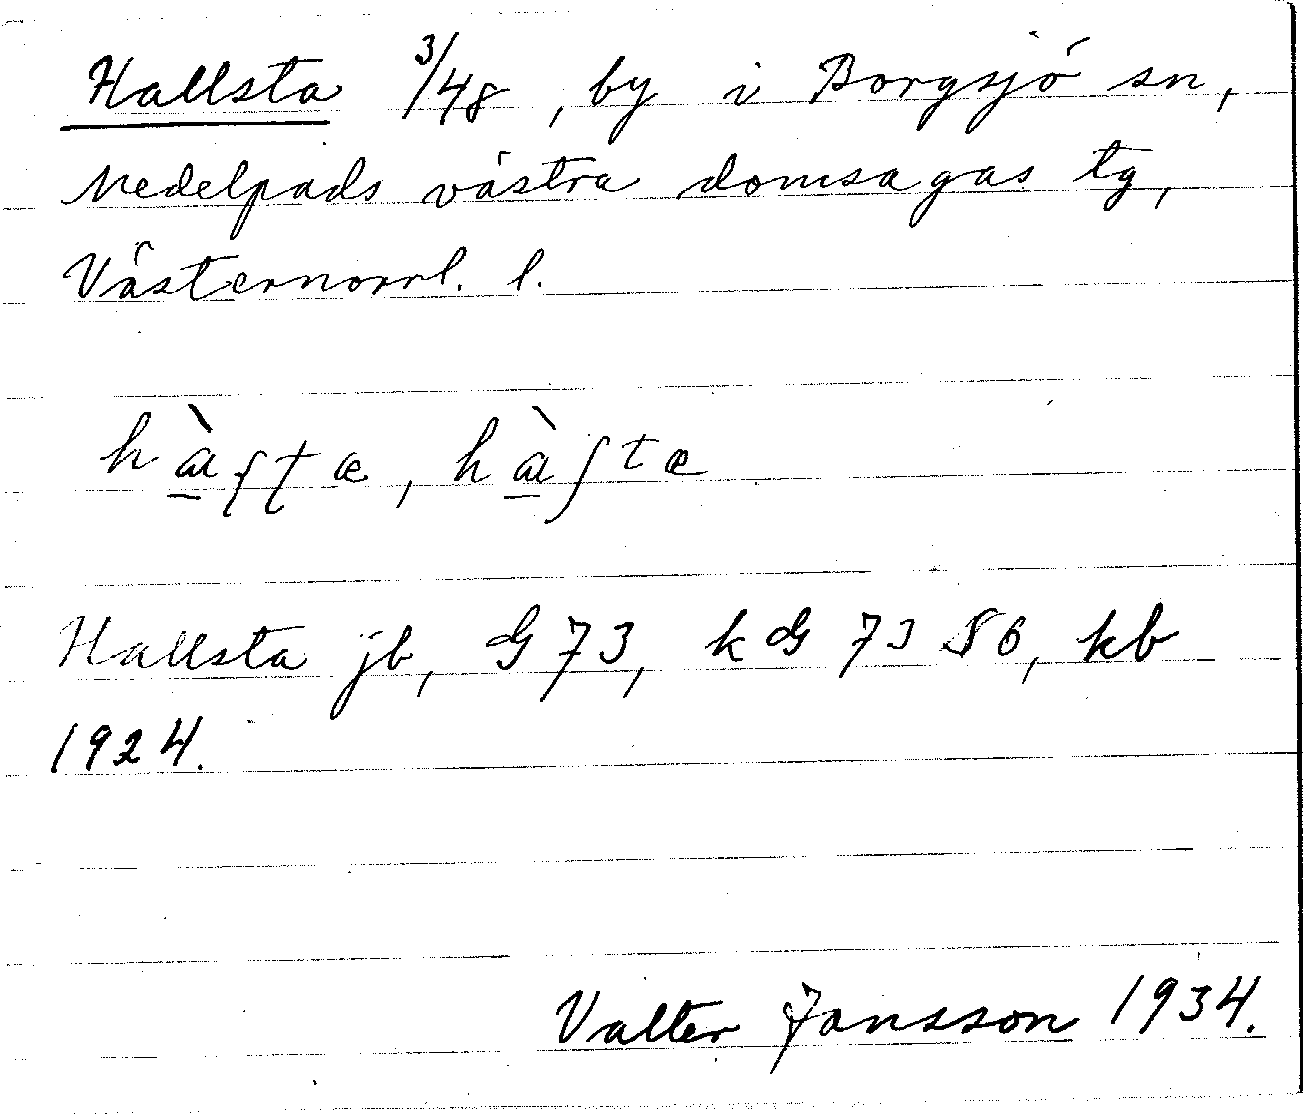 Hallsta 3/48, by i Borgsjö sn,
Medelpads västra domsagas tg,
Västernorrl. l.
hàʂʈæ, hàʃtæ
Hallsta jb, G 73, kG 73 S6, kb
1924.
Valter Jansson 1934.